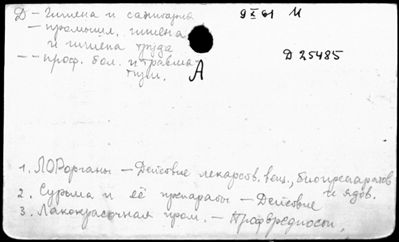 Д – Гигиена и санитария
– промышл. гигиена
и гигиена труда
– – проф. бол. и травма-
тизм.
9 X 61 И
Д 25485
А
1. ЛОРорганы – Действие лекарств. вещ., биопрепаратов
и ядов.
2. Сурьма и её препараты – Действие
3. Лакокрасочная пром. – Профвредности.